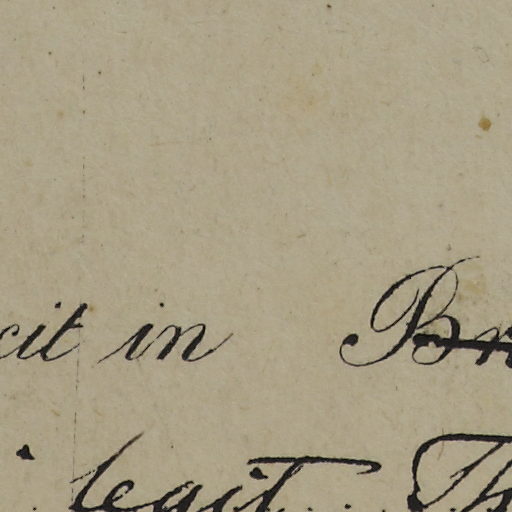 cit in Br
legit. Th